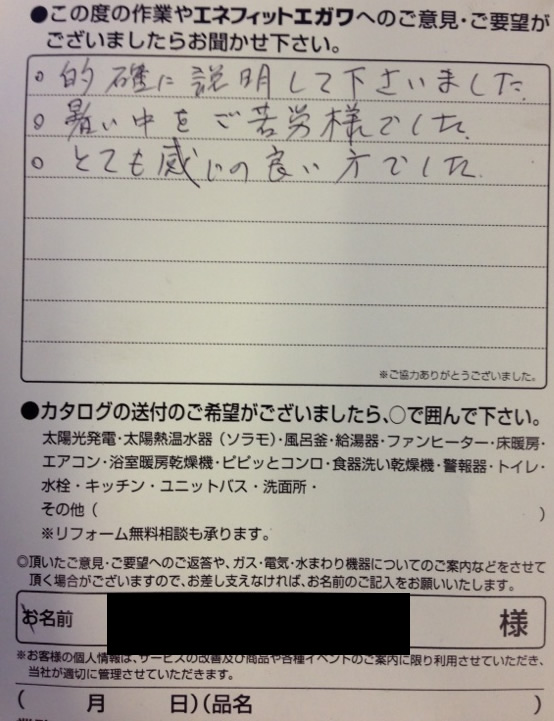 ●この度の作業やエネフィットエガワへのご意見・ご要望が
ございましたらお聞かせ下さい。
○ 的確に説明して下さいました.
○ 暑い中をご苦労様でした.
○ とても感じの良い方でした.
※ご協力ありがとうございました。
●カタログの送付のご希望がございましたら、○で囲んで下さい。
太陽光発電・太陽熱温水器（ソラモ）・風呂釜・給湯器・ファンヒーター・床暖房・
エアコン・浴室暖房乾燥機・ピピッとコンロ・食器洗い乾燥機・警報器・トイレ・
水栓・キッチン・ユニットバス・洗面所・
その他（　　　）
※リフォーム無料相談も承ります。
◎頂いたご意見・ご要望へのご返答や、ガス・電気・水まわり機器についてのご案内などをさせて
頂く場合がございますので、お差し支えなければ、お名前のご記入をお願いいたします。
お名前　　　様
※お客様の個人情報は、サービスの改善及び商品や各種イベントのご案内に限り利用させていただき、
当社が適切に管理させていただきます。
（　　月　　日）（品名　　　）